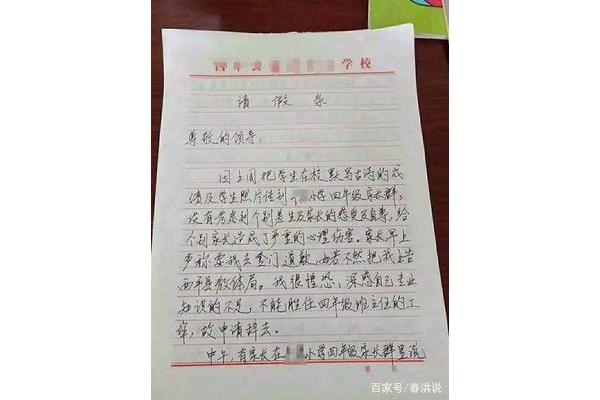 西平县 学校
请 假 条
尊敬的领导:
因上周把学生在校默写古诗的成
绩及学生照片传到 小学四年级家长群,
没有考虑到个别差生及家长的感受及自尊,给
个别家长造成了严重的心理伤害。家长早上
声称要我去登门道歉,如若不然把我上告
西平县教体局。我很惶恐,深感自己专业
知识的不足,不能胜任四年级班主任的工
作,故申请辞去。
中午,有家长在 小学四年级家长群里说
第 页
百家号/春洪说